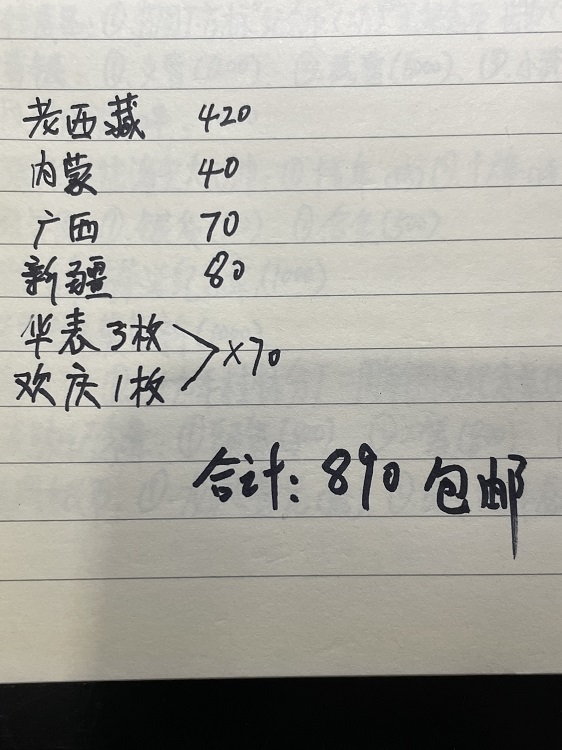 老西藏 420
内蒙 40
广西 70
新疆 80
华表3枚
欢庆1枚 ×70
合计：890 包邮